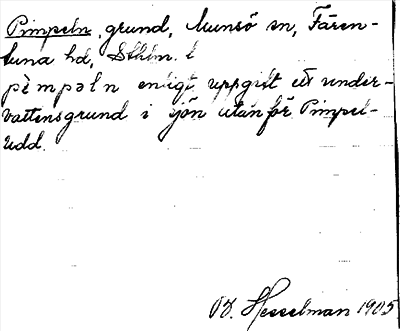 Pimpeln, grund, Munsö sn, Fären-
tuna hd, Sthlm. l
pìmpəln enligt uppgift ett under-
vattensgrund i sjön utanför Pimpel-
udd.
Hesselman 1905